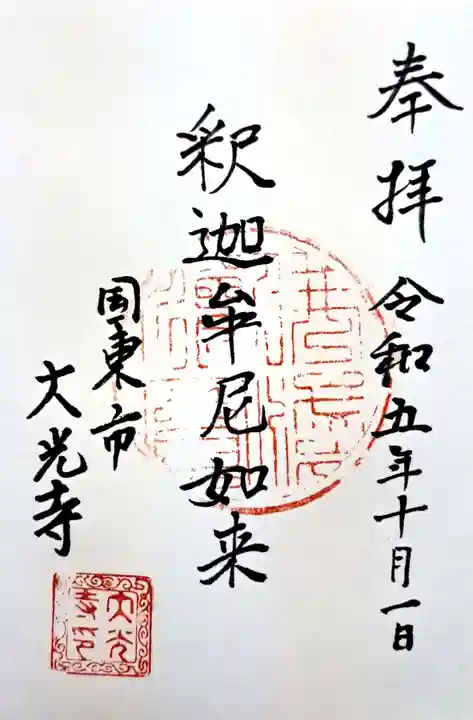 奉拝 令和五年十月一日
釈迦牟尼如来
国東市
大光寺
大光
寺印